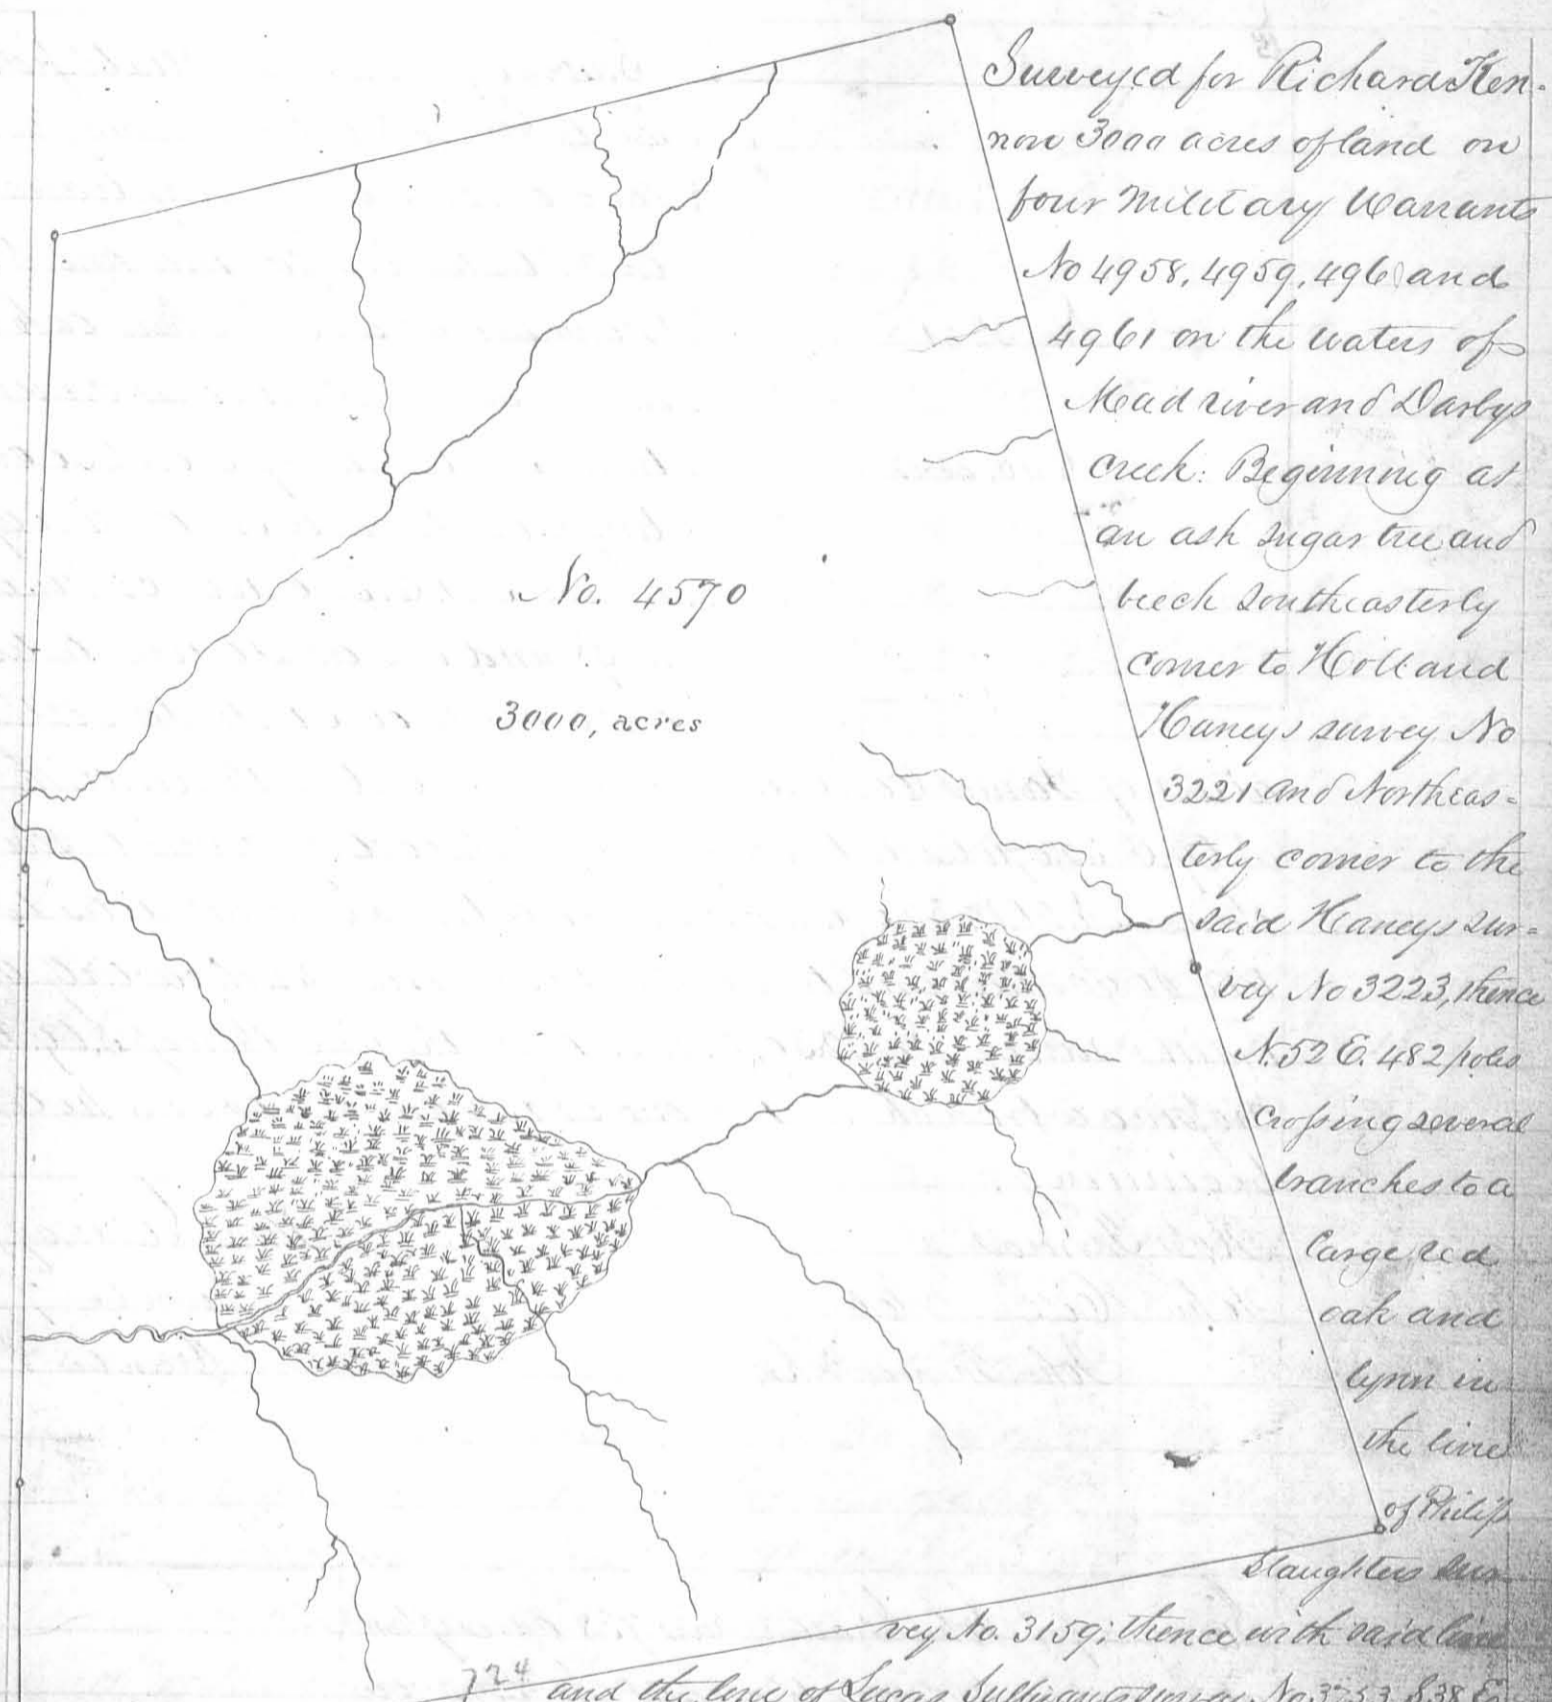 Surveyed for Richard Ken-
non 3000 acres of land on
four Military Warrants
No 4958, 4959, 496 and
4961 on the waters of
Mad river and Darbys
Creek: Beginning at
an ash sugar tree and
beech southeasterly
corner to Holland
Haneys survey No
3221 and Northeas=
terly corner to the
said Haneys sur=
vey No 3223, thence
N. 52 E. 482 poles
crossing several
branches to a
large red
oak and
lynn in
the line
of Philip
Slaughters sur
vey No. 3159; thence with said line
724
and the line of Lucas Sullivants survey No S 38 E
No. 4570
3000, acres